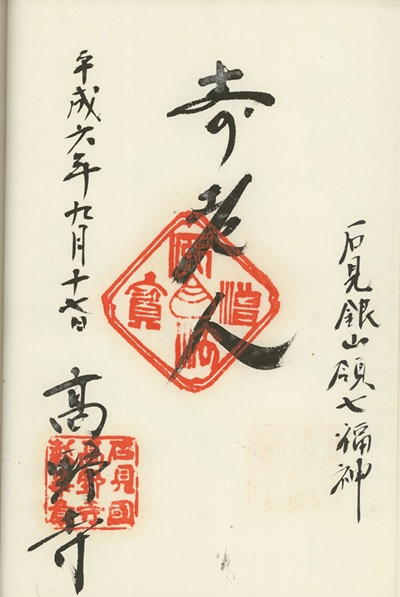 石見銀山領七福神
寿老人
平成六年九月十七日
高野寺
寶
石見国